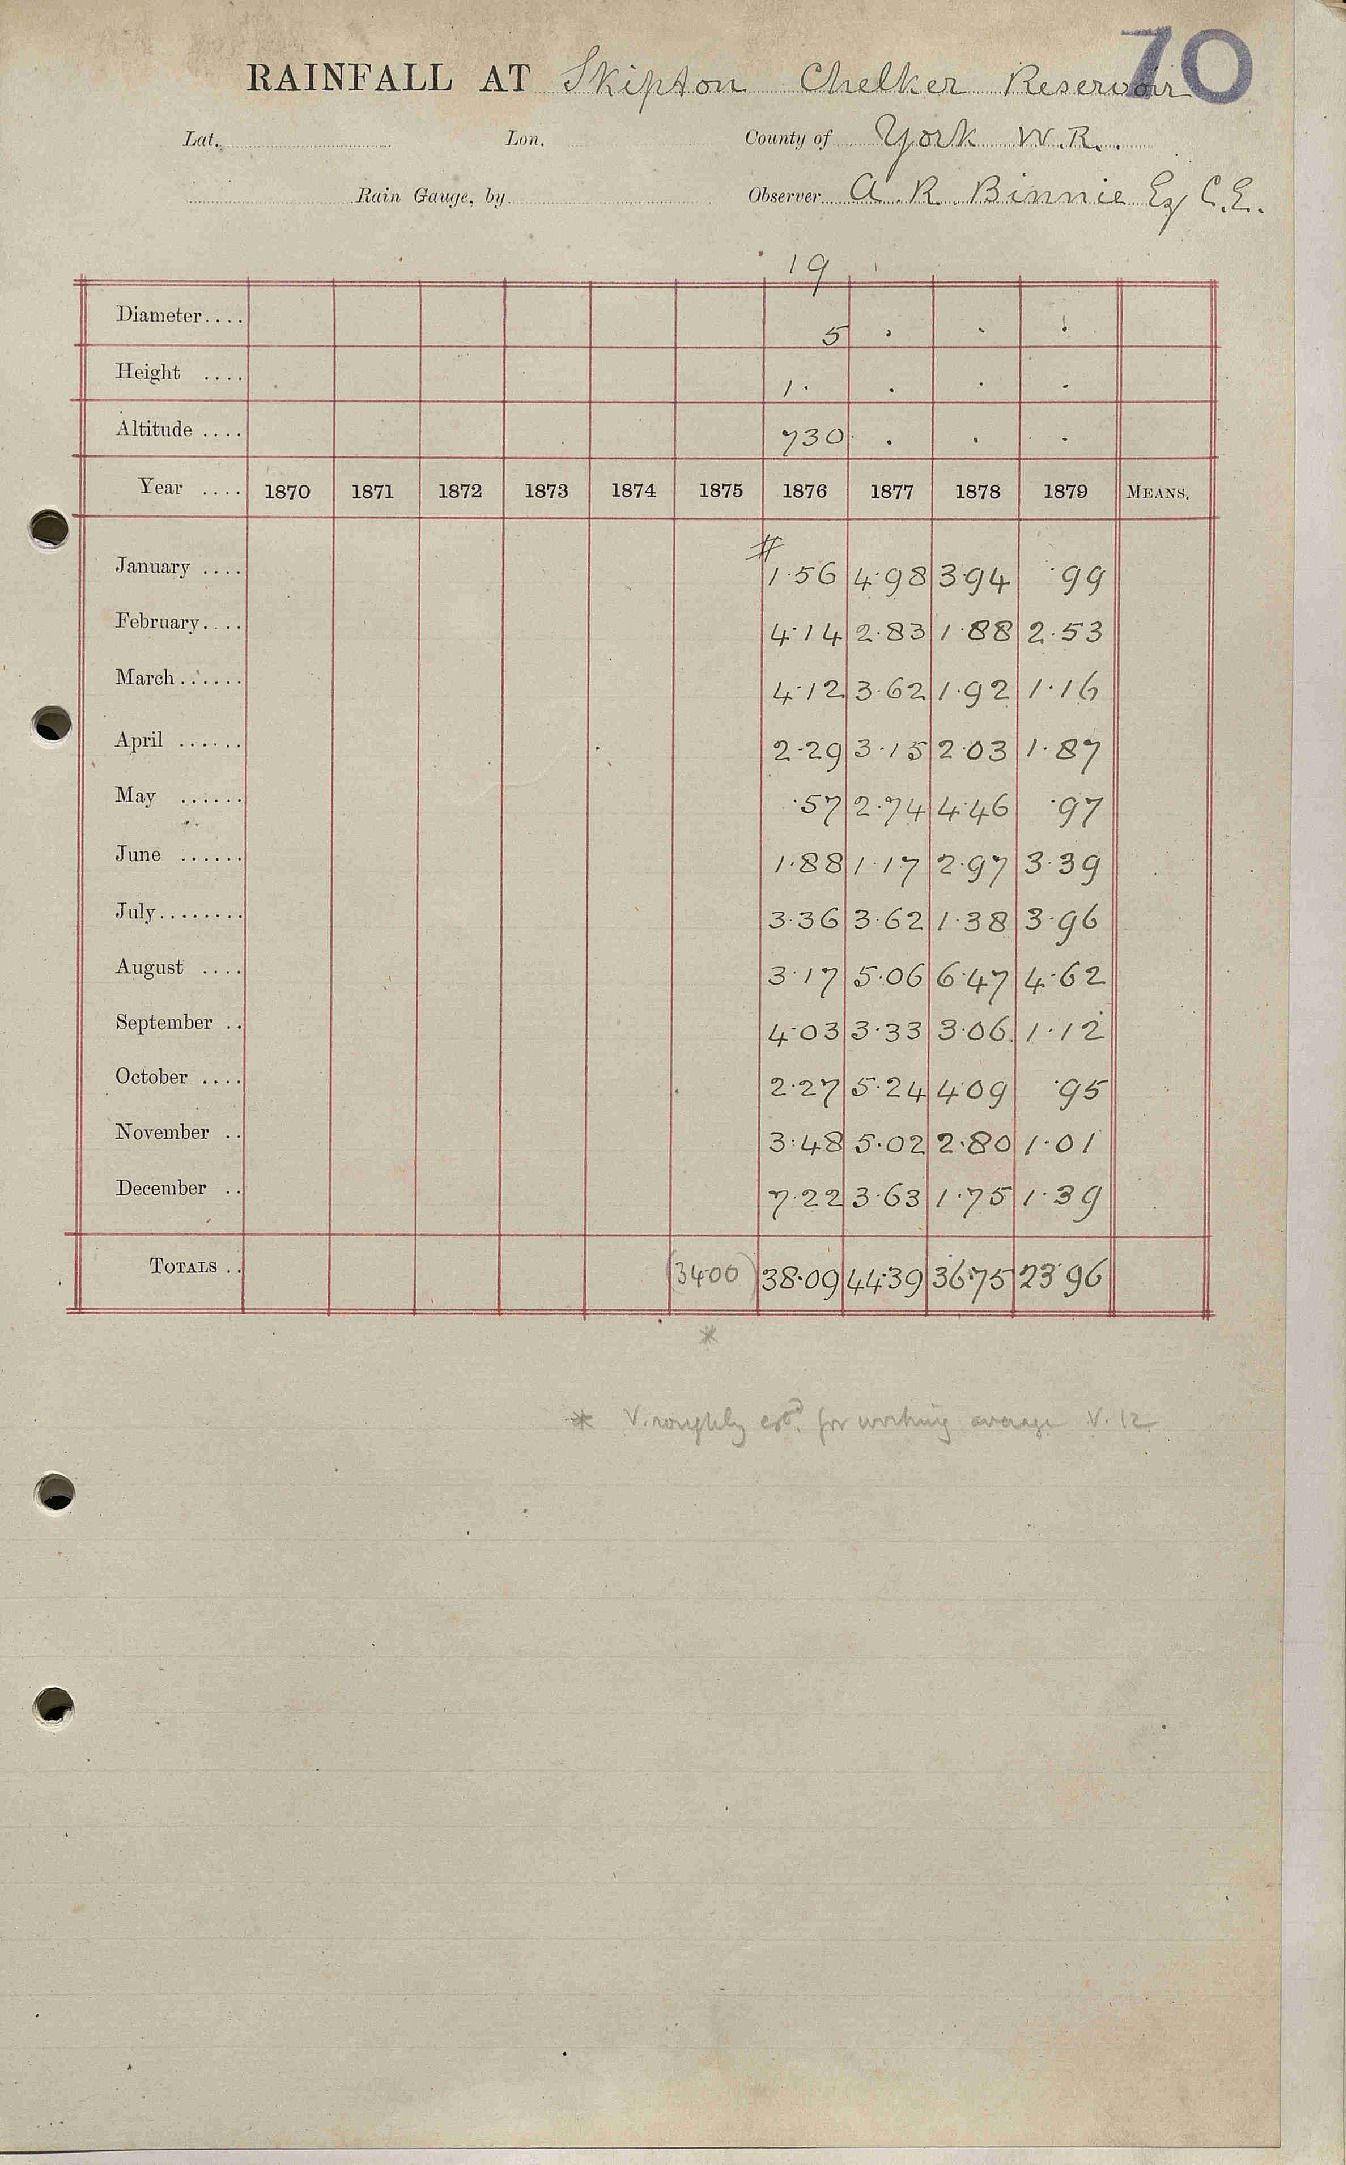 70
RAINFALL AT Skipton Chelker Reservoir
Lat. Lon. County of York W.R.
Rain Gauge, by Observer A. R. Binnie Esq C.E.
19
Diameter.... 5 . . .
Height .... 1. . . .
Altitude .... 730 . . .
Year .... 1870 1871 1872 1873 1874 1875 1876 1877 1878 1879 MEANS.
#
January .... 1.56 4.98 3.94 .99
February.... 4.14 2.83 1.88 2.53
March...... 4.12 3.62 1.92 1.16
April ...... 2.29 3.15 2.03 1.87
May ...... .57 2.74 4.46 .97
June ...... 1.88 1.17 2.97 3.39
July........ 3.36 3.62 1.38 3.96
August .... 3.17 5.06 6.47 4.62
September .. 4.03 3.33 3.06 1.12
October .... 2.27 5.24 4.09 .95
November .. 3.48 5.02 2.80 1.01
December .. 7.22 3.63 1.75 1.39
TOTALS .. (3400) 38.09 44.39 36.75 23.96
*
* V. roughly estd. for working average V. 12